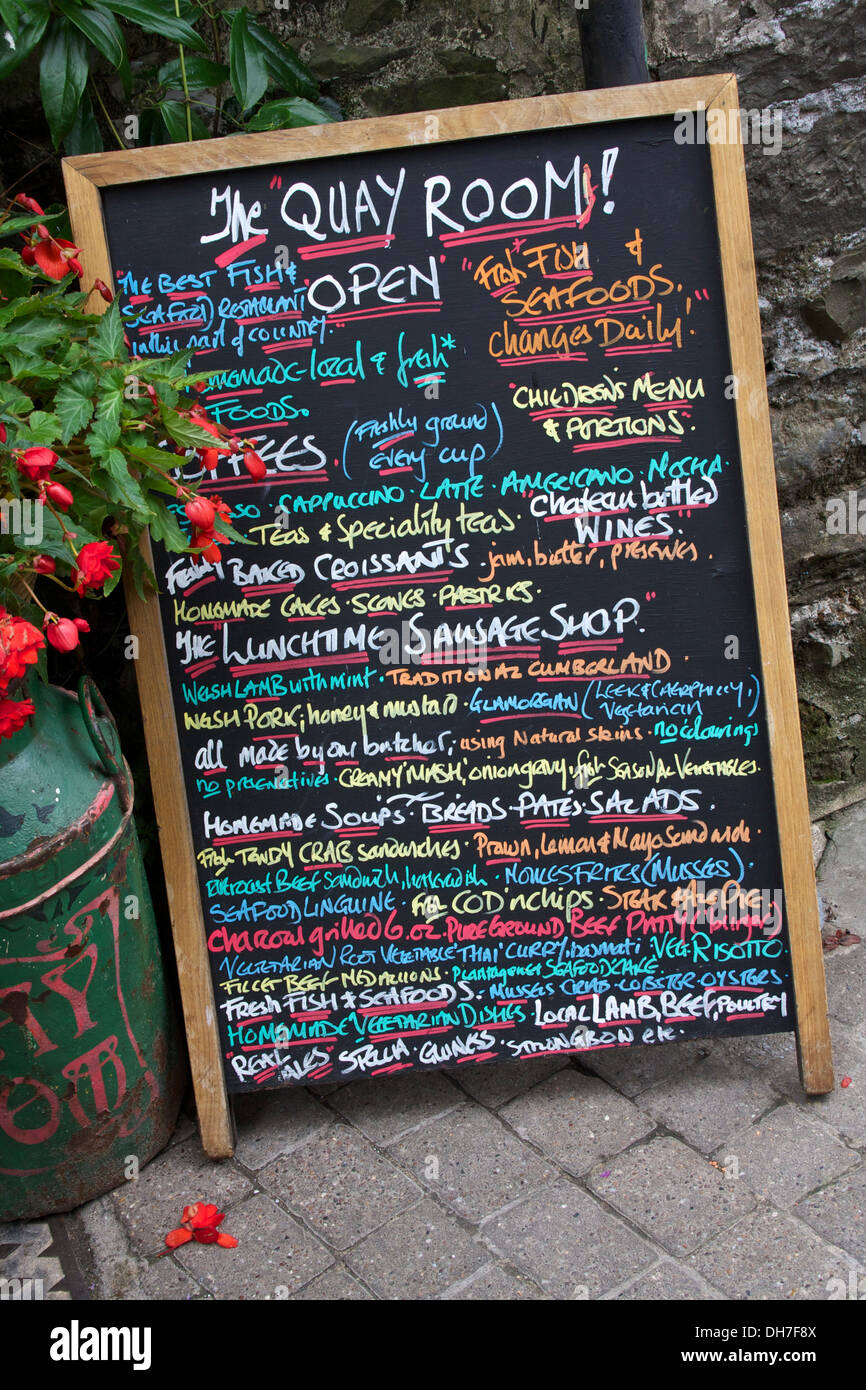 The "QUAY ROOM!
"THE BEST FISH &
SEAFOOD RESTAURANT
in this part of COUNTRY"
OPEN"
"Fresh FISH &
SEAFOODS.
changes Daily!"
Homemade-local & fresh*
FOODS.
"CHILDREN'S MENU
& PORTIONS"
COFFEES
(Freshly ground
every cup)
CAPPUCCINO · LATTE · AMERICANO · MOCHA ·
TEAS & Speciality teas
"Chateau bottled
WINES"
BAKED CROISSANTS · jam, butter, preserves ·
HOMEMADE CAKES · SCONES · PASTRIES ·
"THE "LUNCHTIME SAUSAGE SHOP."
WELSH LAMB with mint · TRADITIONAL CUMBERLAND ·
WELSH PORK, honey & mustard · GLAMORGAN (LEEK & CAERPHILLY,
Vegetarian
all made by our butcher, using Natural skins · no colourings
no preservatives · CREAMY MASH, onion gravy, fresh SEASONAL VEGETABLES ·
HOMEMADE SOUPS · BREADS · PATES · SALADS ·
CRAB sandwiches · Prawn, Lemon & Mayo Sandwich ·
BEEF Sandwich, horseradish · MOULES FRITES (MUSSELS)
SEAFOOD LINGUINE · COD 'n chips · STEAK & ALE PIE
charcoal grilled 6 oz. PURE GROUND BEEF PATTY (burger)
VEGETARIAN ROOT VEGETABLE 'THAI' CURRY, basmati · VEG. RISOTTO ·
FILLET BEEF MEDALLIONS · SEAFOOD CAKE ·
FRESH FISH & SEAFOODS · MUSSELS · CRAB · LOBSTER · OYSTERS
HOMEMADE VEGETARIAN DISHES · LOCAL LAMB, BEEF, POULTRY
"REAL" ALES · STELLA · GUINESS · STRONGBOW etc ·
alamy
Image ID: DH7F8X
www.alamy.com